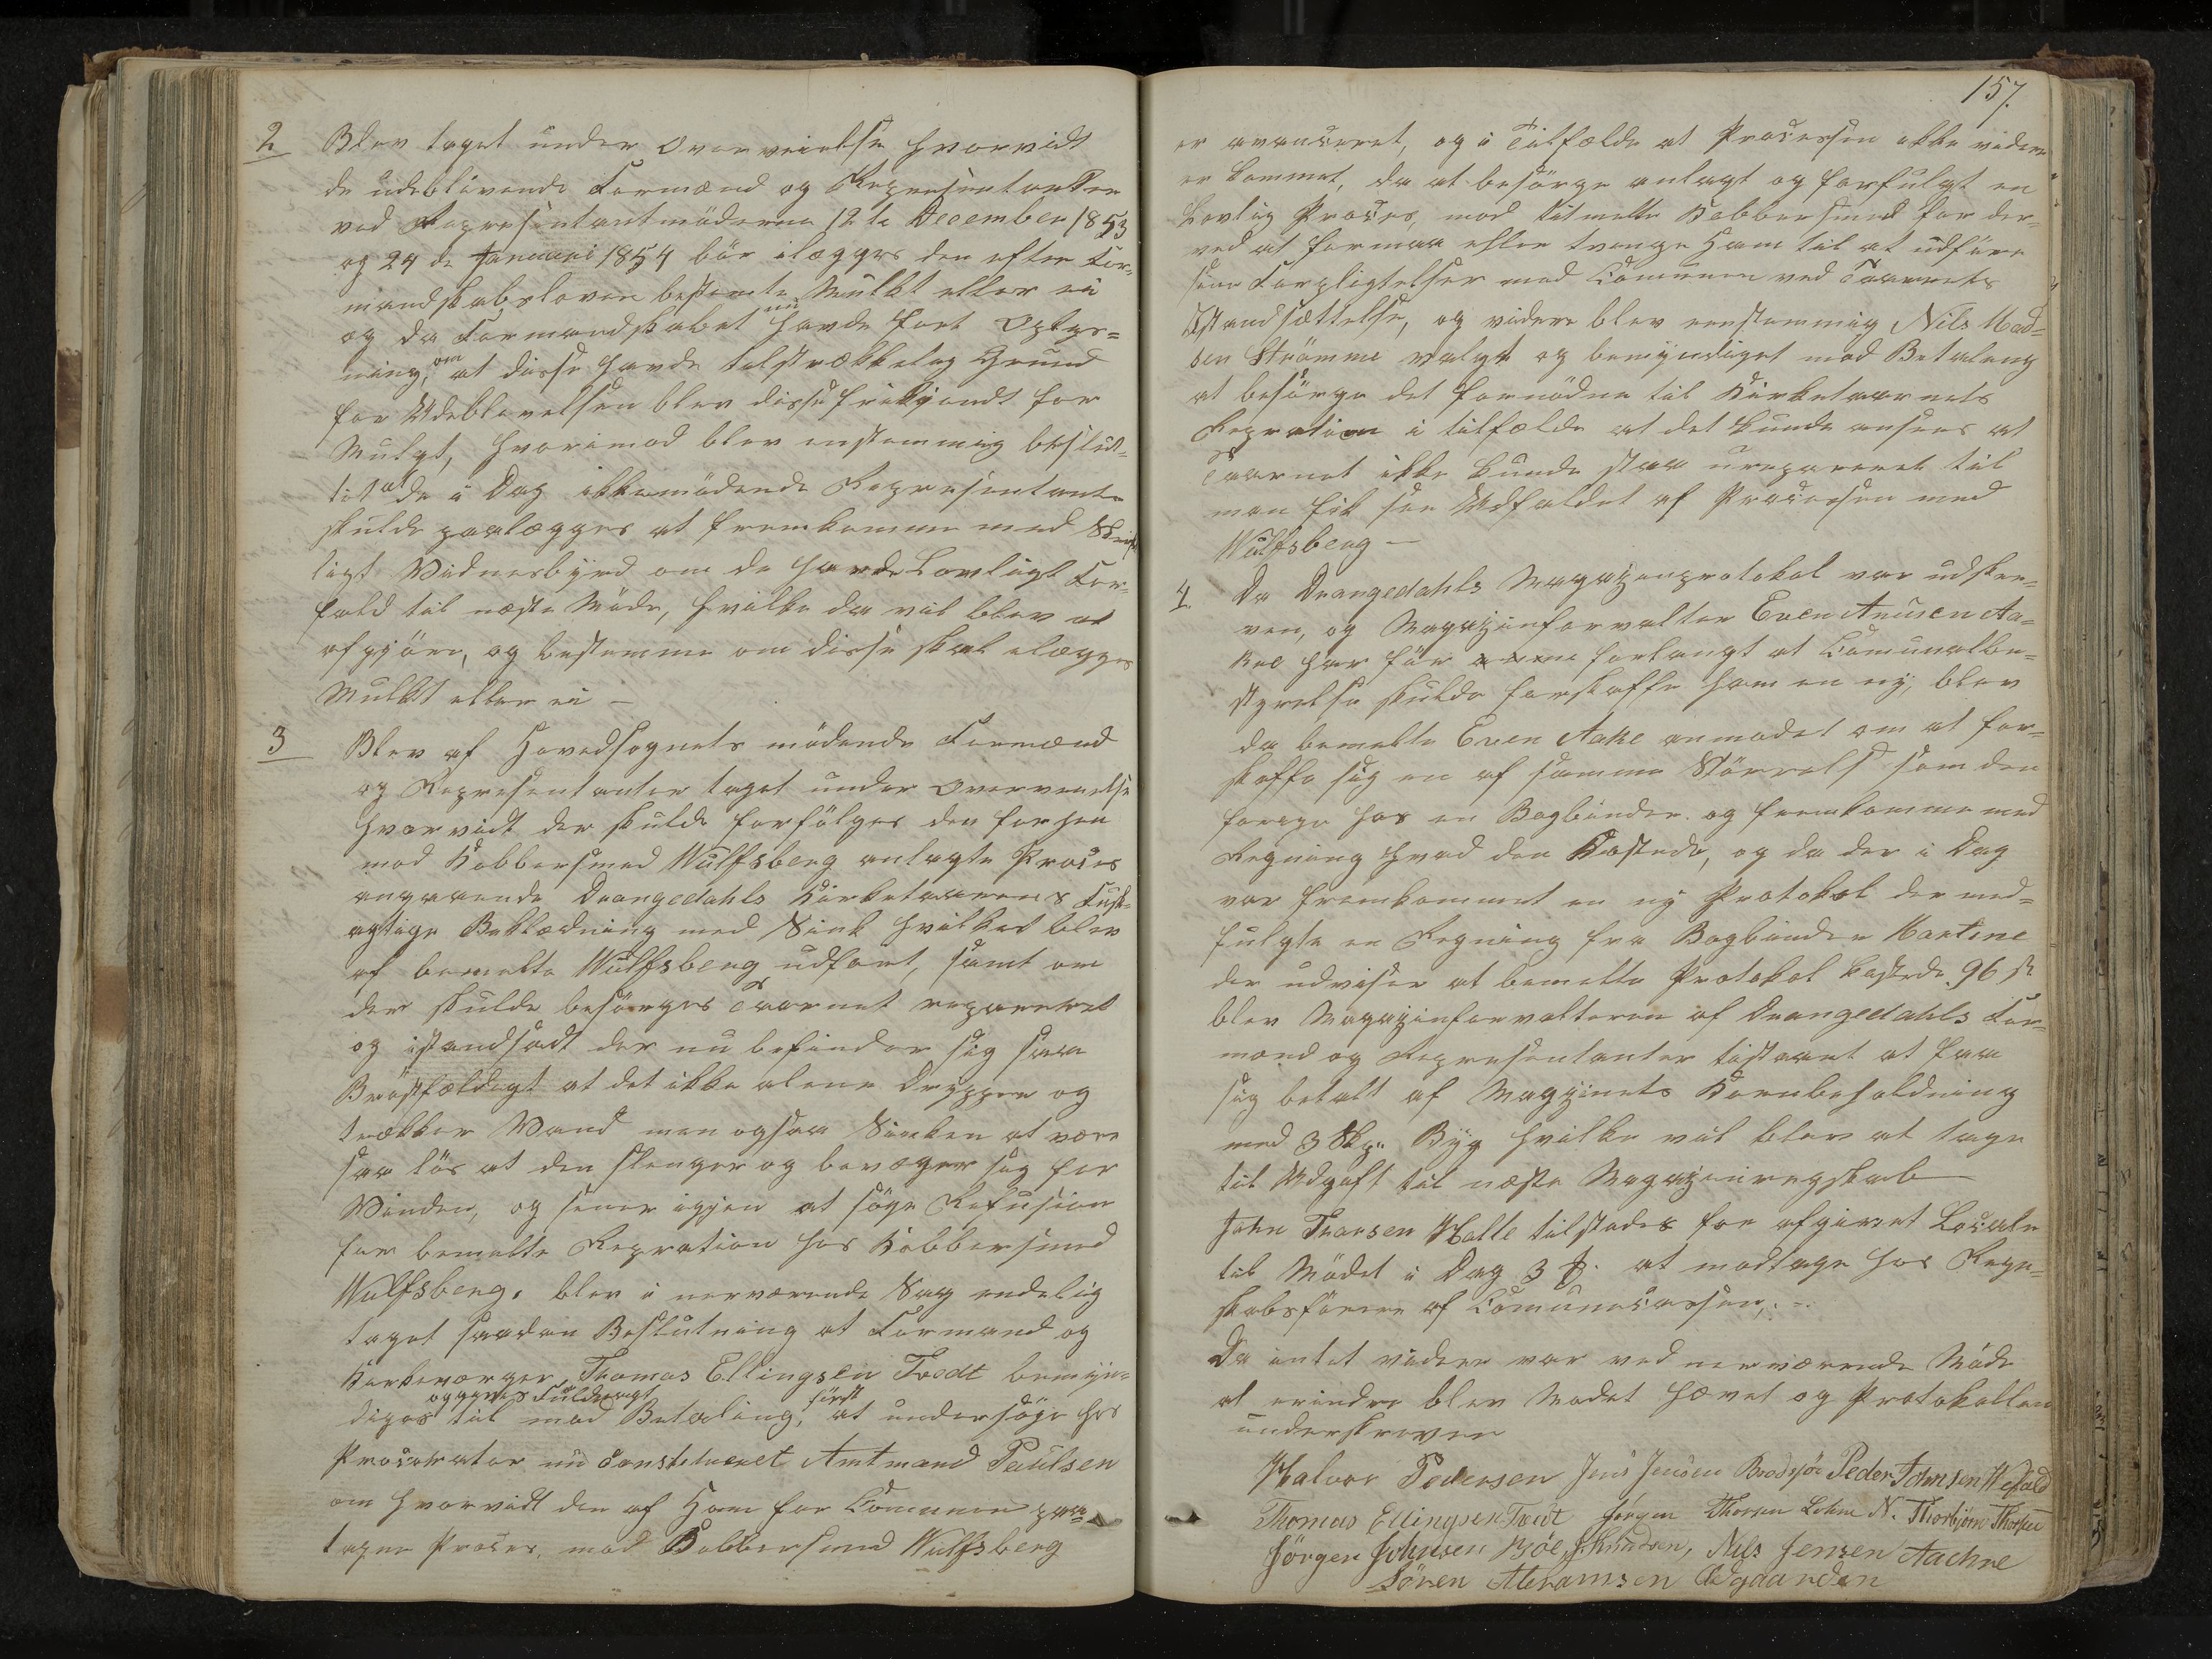 2 Blev taget under Overveielse hvorvidt
de udeblivende Formænd og Repræsentanter
ved Repræsentantmöderne 12te December 1853
og 24de Januari 1854 bör ilægges den efter For-
mandskabsloven bestemte Mulkt eller ei
og da Formandskabet nu havde faaet Oplys-
ning, om at disse havde tilstrækkelig Grund
for Udeblivelsen blev disse frikjendt for
Mulgt, hvorimod blev enstemmig beslut-
tet at de i Dag ikkemödende Repræsentante
skulde paalægges at fremkomme med Skrift
ligt Vidnesbyrd om de havde Lovligt For-
fald til næste Möde, hvilke da vil blev at
afgjöre, og bestemme om disse skal ilægges
Mulkt eller ei -
3 Blev af Hovedsognets mödende Formænd
og Repræsentanter taget under Overveielse
hvorvidt der skulde forfölges den forhen
mod Kobbersmed Wulfsberg anlagte Proces
angaaende Drangedahls Kirketaarns Fusk-
agtige Beklædning med Sink hvilket blev
af bemelte Wulfsberg udfört, samt om
der skulde besörges Taarnet repareret
og istandsadt der nu befinder sig saa
Bröstfældigt at det ikke alene drypper og
trækker Vand men ogsaa Sinken at være
saa lös at den slenger og bevæger sig for
Vinden, og siener igjen at söge Refusion
for bemelte Repration hos Kobbersmed
Wulfsberg, blev i nerværende Sag endelig
taget saadan Beslutning at Formand og
Kirkeværger, Thomas Ellingsen Tvedt bemyn-
oggives Fuldmagt först
diges til mod Betaling, at undersöge hos
Procurator nu Constitueret Amtmand Paulsen
om hvorvidt den af Ham for Comunen paa-
tagne Proces, mod Kobbersmed Wulfsberg
157.
er avanceret, og i Tilfælde at Processen ikke videre
er kommet, da at besörge anlagt og forfulgt en
Lovlig Proces, mod bemelte Kobbersmed for der-
ved at formaa eller tvenge Ham til at udföre
sine Forpligtelser med Comunen ved Taarnets
Istandsættelse, og videre blev eenstemmig Nils Mad-
sen Strömme valgt og bemyndiget mod Betaling
at besörge det fornödne til Kirketaarnets
Repration i tilfælde at det kunde ansees at
Taarnet ikke kunde staa urepareret til
man fik see Udfaldet af Processen med
Wulfsberg -
4. Da Drangedahls Magazinprotokol var udskre-
ven, og Magazinforvalter Even Anusen Aa-
kre har för forlangt at Comunalbe-
styrelse skulde forskaffe ham en ny, blev
da bemelte Even Aake anmodet om at for-
skaffe sig en af samme Störrels som den
forige hos en Bogbinder og fremkomme med
Regning hvad den Kostede, og da der i Dag
var fremkommet en ny Protokol der med-
fulgte en Regning fra Bogbinder Martine
der udviser at bemelte Protokol kostede 96 s
blev Magazinforvalteren af Drangedahls For-
mænd og Repræsentanter tilstaaet at faa
sig betalt af Magzinets Kornbeholdning
med 3 Skp. Byg hvilke vil blev at tage
til Udgift til næste Magazinregskab
John Tharsen Walle tilstodes for afgivet Locale
til Mödet i Dag 3 at modtage hos Regn-
skabsförere af Comunecassen, -
Da intet videre var ved nerværende Möde
at erindre blev Mödet hævet og Protokollen
underskreven
Halvor Pedersen Jens Jensen Brödsjöe Peder Johnsen Wefald
Thomas Ellingsen Tvedt Jörgen N. Thorbjörn
Jörgen Johnsen Böe, Knudsen, Nils Jensen
Sören Abramsen